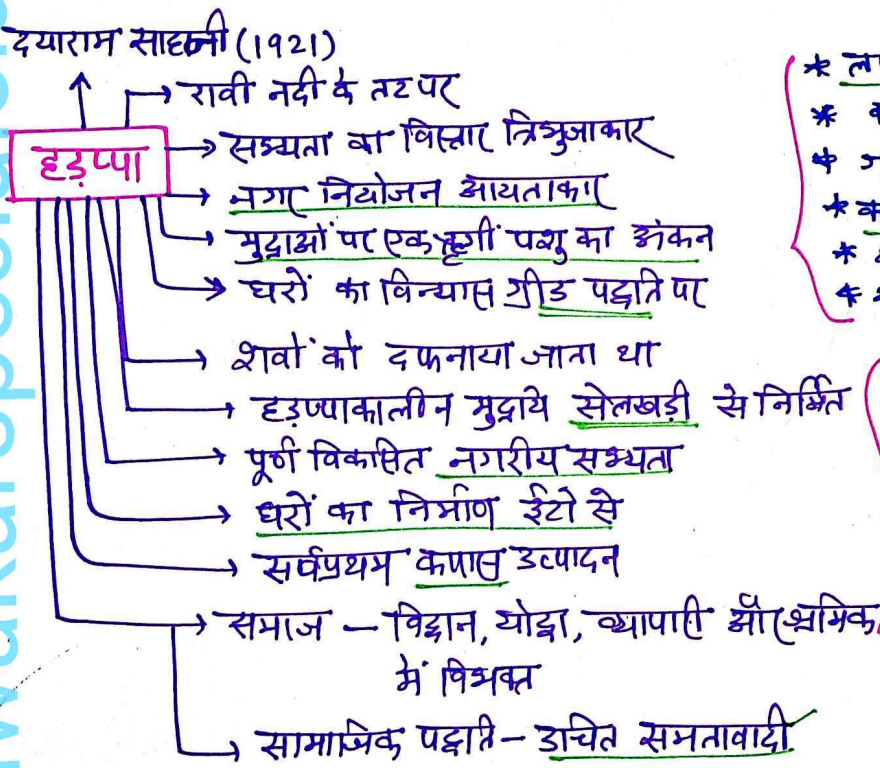 दयाराम साहनी (1921)
हड़प्पा
रावी नदी के तट पर
सभ्यता का विस्तार त्रिभुजाकार
नगर नियोजन आयताकार
मुद्राओं पर एक श्रृंगी पशु का अंकन
घरों का विन्यास ग्रीड पद्धति पर
शवों को दफनाया जाता था
हड़प्पाकालीन मुद्राये सेलखड़ी से निर्मित
पूर्ण विकसित नगरीय सभ्यता
घरों का निर्माण ईटो से
सर्वप्रथम कपास उत्पादन
समाज – विद्वान, योद्धा, व्यापारी और श्रमिक
में विभक्त
सामाजिक पद्धति – उचित समतावादी